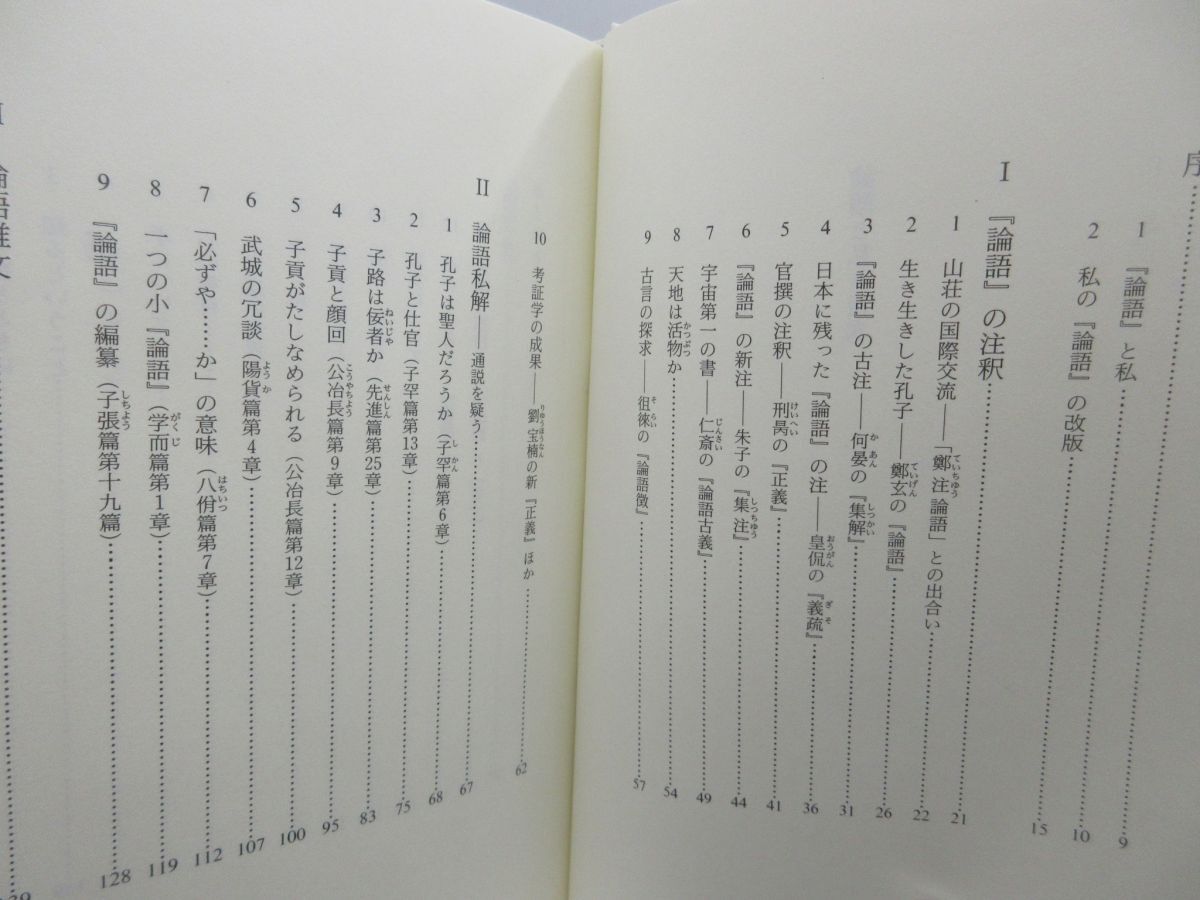 序………… 9
1 『論語』と私………… 10
2 私の『論語』の改版………… 15
Ⅰ 『論語』の注釈………… 21
1 山荘の国際交流――「鄭注論語」との出合い………… 22
2 生き生きした孔子――鄭玄の『論語』………… 26
3 『論語』の古注――何晏の『集解』………… 31
4 日本に残った『論語』の注――皇侃の『義疏』………… 36
5 官撰の注釈――邢昺の『正義』………… 41
6 『論語』の新注――朱子の『集注』………… 44
7 宇宙第一の書――仁斎の『論語古義』………… 49
8 天地は活物か………… 54
9 古言の探求――徂徠の『論語徴』………… 57
10 考証学の成果――劉宝楠の新『正義』ほか………… 62
Ⅱ 論語私解――通説を疑う………… 67
1 孔子は聖人だろうか（子罕篇第6章）………… 68
2 孔子と仕官（子罕篇第13章）………… 75
3 子路は佞者か（先進篇第25章）………… 83
4 子貢と顔回（公冶長篇第9章）………… 95
5 子貢がたしなめられる（公冶長篇第12章）………… 100
6 武城の冗談（陽貨篇第4章）………… 107
7 「必ずや……か」の意味（八佾篇第7章）………… 112
8 一つの小『論語』（学而篇第1章）………… 119
9 『論語』の編纂（子張篇第十九篇）………… 128